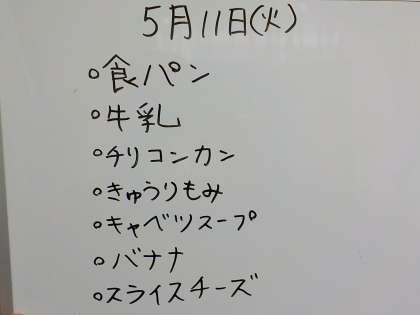 5月11日(火)
○食パン
○牛乳
○チリコンカン
○きゅうりもみ
○キャベツスープ
○バナナ
○スライスチーズ